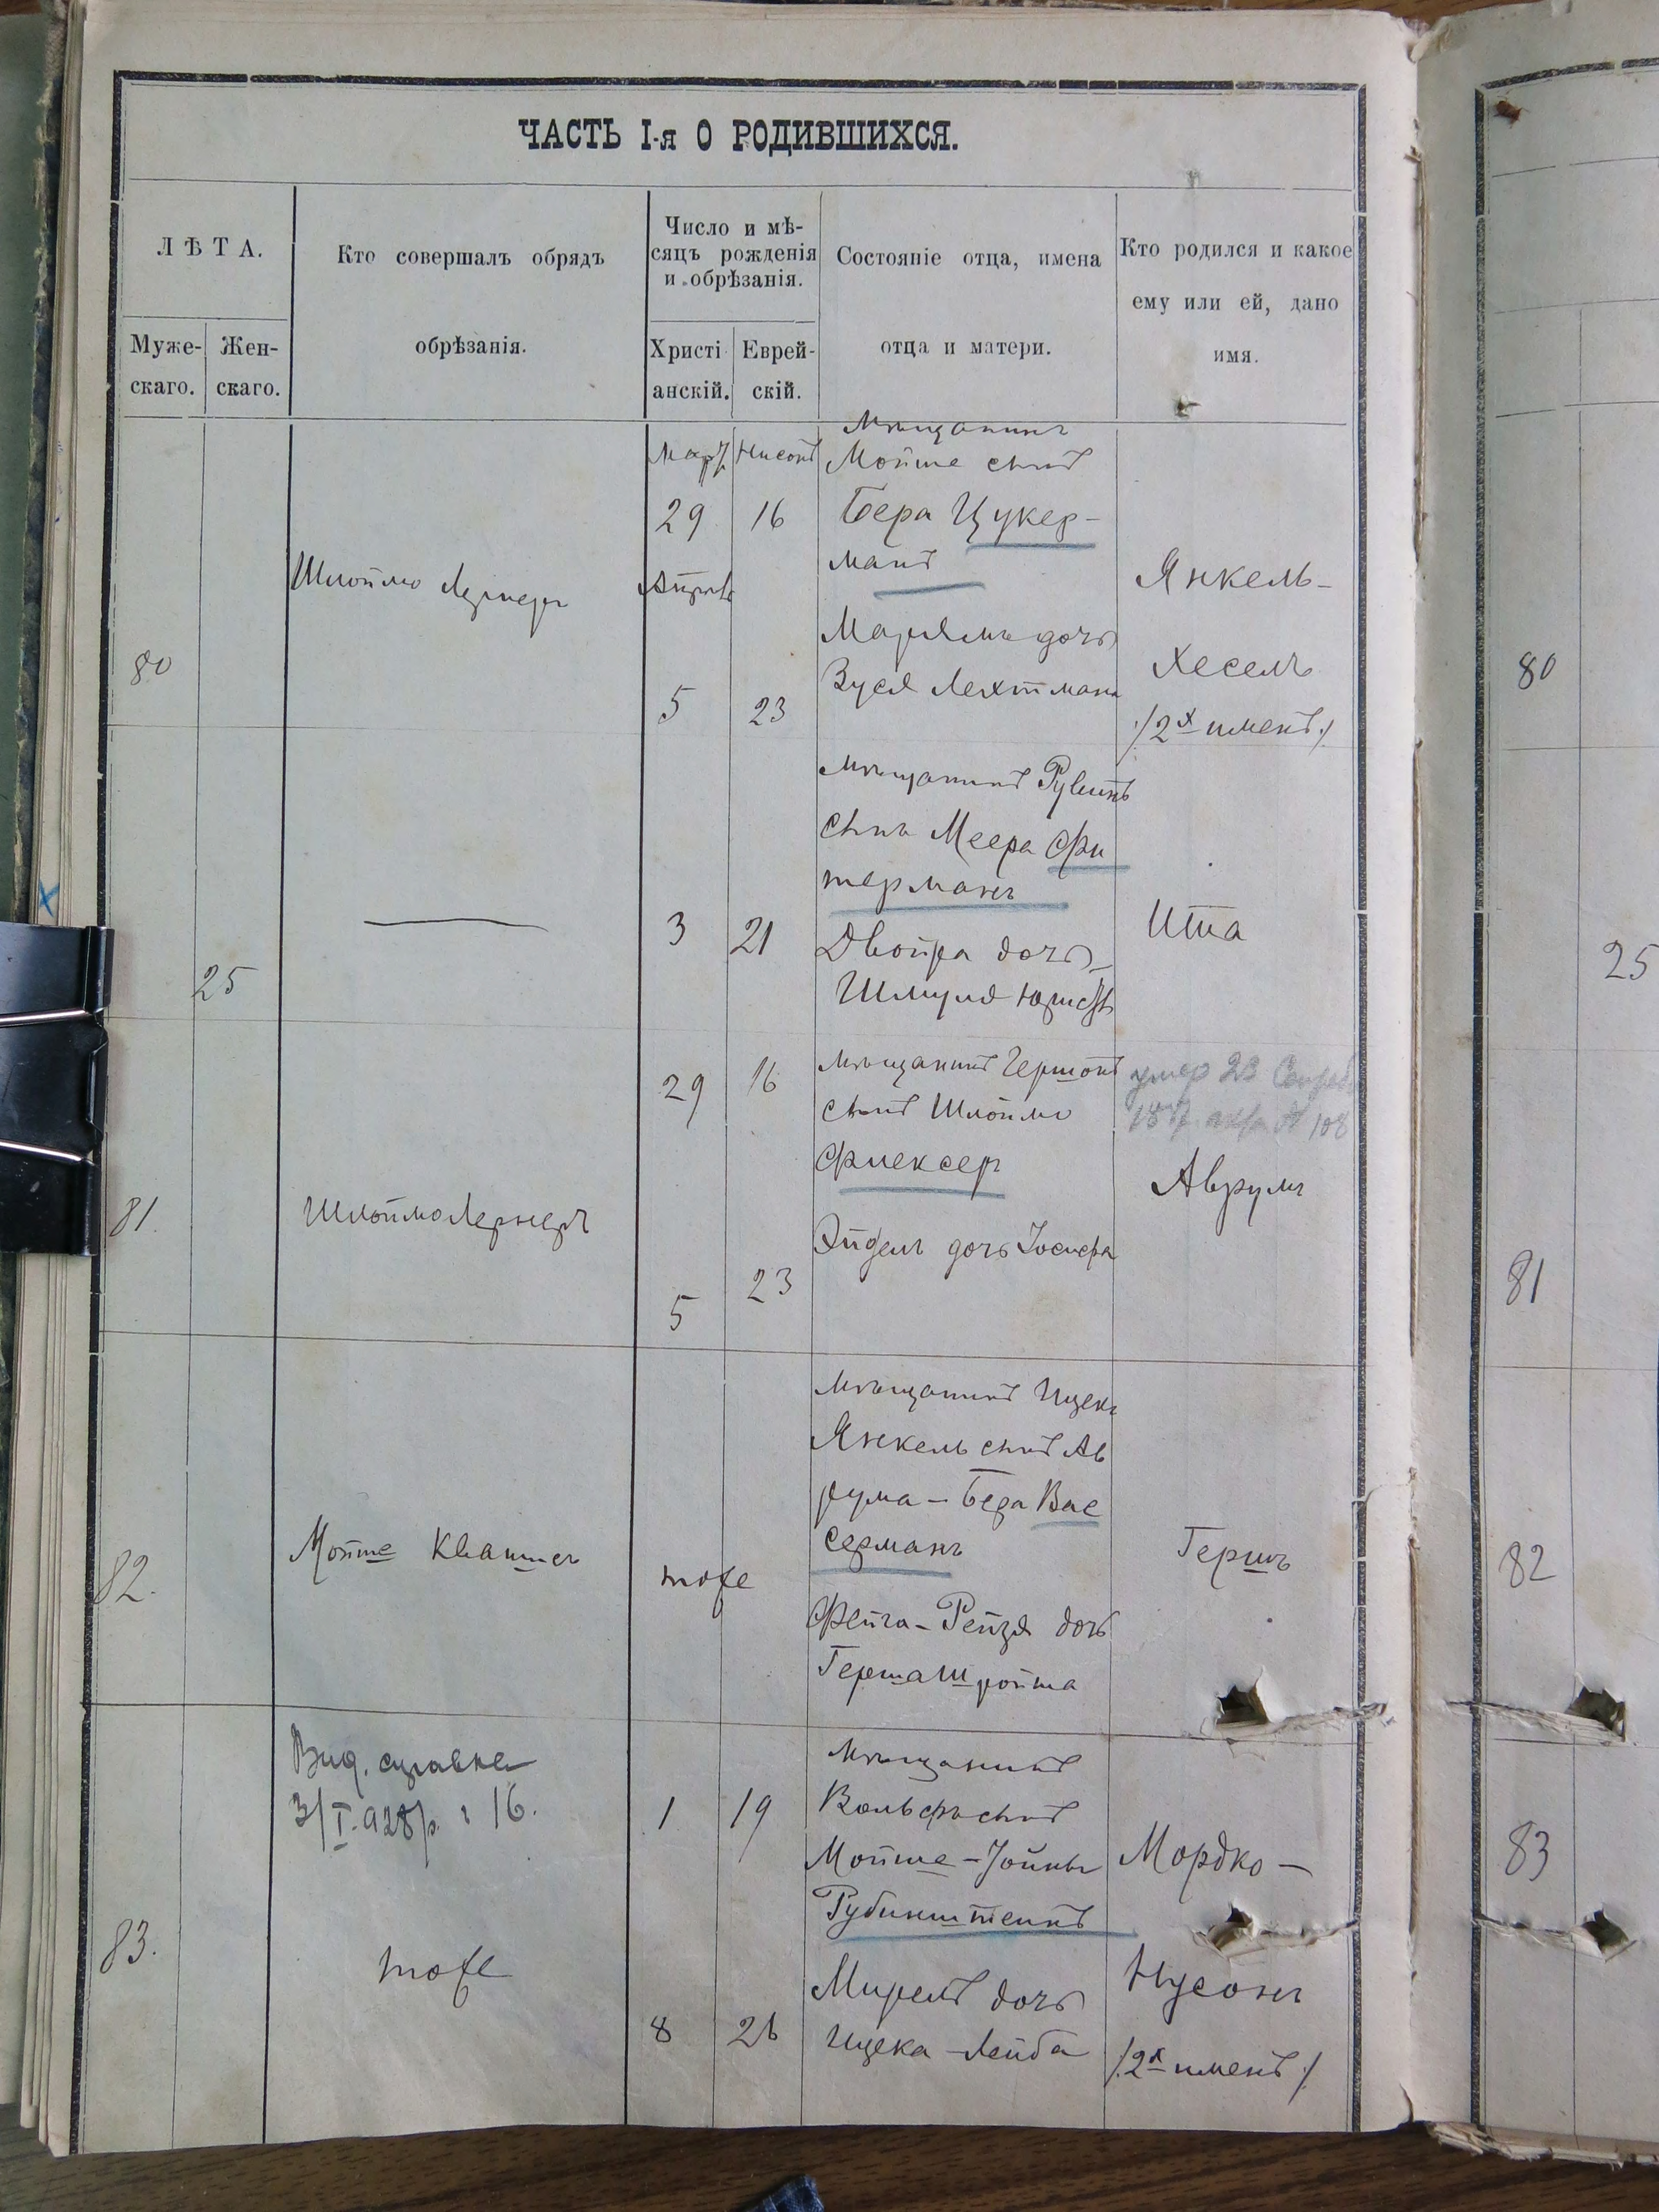 ЧАСТЬ I-я О РОДИВШИХСЯ.
ЛѢТА.
Муже-
скаго.
Жен-
скаго.
Кто совершалъ обрядъ
обрѣзанія.
Число и мѣ-
сяцъ рожденія
и обрѣзанія.
Христі
анскій.
Еврей-
скій.
Состояніе отца, имена
отца и матери.
Кто родился и какое
ему или ей, дано
имя.
80
Шлойме Лернеръ
Мар
29
Апрѣль
5
Нисонъ
16
23
Мѣщанинъ
Мойше сынъ
Бера Цукер-
манъ
Марьямъ дочь
Зуся Лехтмана
Янкель-
Хесель
/2х именъ/
80
25
3
21
Мѣщанинъ Рувинъ
сынъ Меера Фи
терманъ
Двойра дочь
Шмуля
Ита
25
81.
Шлоймо Лернеръ
29
5
16
23
Мѣщанинъ Гершонъ
сынъ Шлоймо
Флексер
Эйдель дочь Іосифа
умер 23
№ 108
Аврумъ
81
82.
Мойше Квашисъ
тоже
Мѣщанинъ Ицекъ
Янкель сынъ Ав
рума-Бера Вас
серманъ
Фейга-Рейзя дочь
Герша Шройта
Гершъ
82
83.
Вид. справка
3/I.928р. 16.
тоже
1
8
19
26
Мѣщанинъ
Вольфъ сынъ
Мойше-Іойны
Рубинштейнъ
Мирель дочь
Ицека-Лейба
Мордко-
Нусонъ
/2х именъ/
83